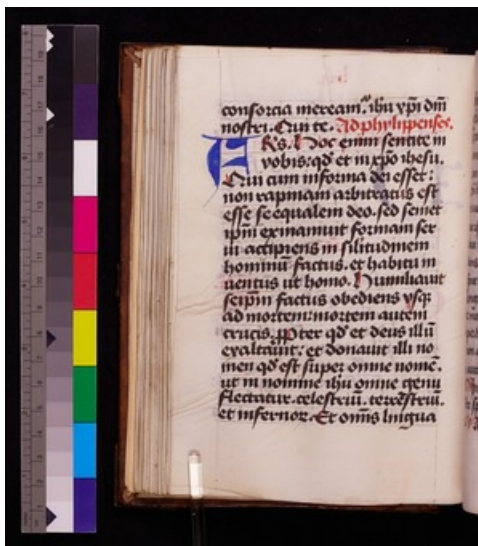 consorcia meream᷑. ihu xp̄i dn̄i
nostri. Cui te. Ad phylippenses.
FRs. Hoc enim sentite in
vobis: qd̛ et in xp̄o ihesu.
Qui cum in forma dei esset:
non rapinam arbitratus est
esse se equalem deo. sed semet
ip̄m exinaniuit formam ser
ui accipiens in silitudinem
hominū factus. et habitu in
uentus ut homo. Humiliauit
seip̄m factus obediens vsq̨
ad mortem: mortem autem
crucis. ꝓpter qd̛ et deus illū
exaltauit: et donauit illi no
men qd̛ est super omne nomē.
ut in nomine ihu omne genu
flectatur. celestriū. terrestriū.
et infernor. Et omīs lingua